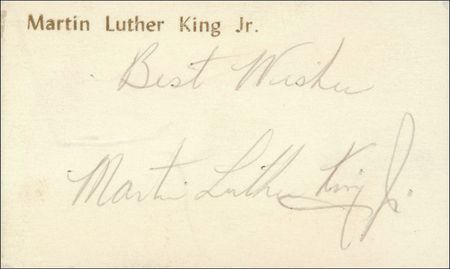 Martin Luther King Jr.
Best Wishes
Martin Luther King Jr.